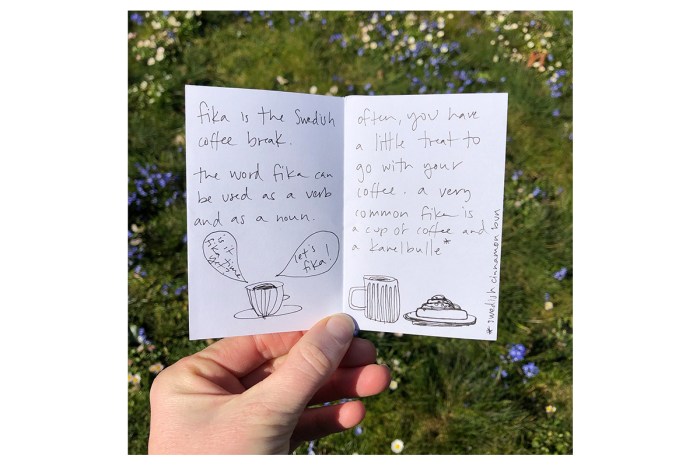 fika is the Swedish
coffee break.
the word fika can
be used as a verb
and as a noun.
is it
fika time
yet?
let's
fika!
often, you have
a little treat to
go with your
coffee. a very
common fika is
a cup of coffee and
a kanelbulle*
*swedish cinnamon bun